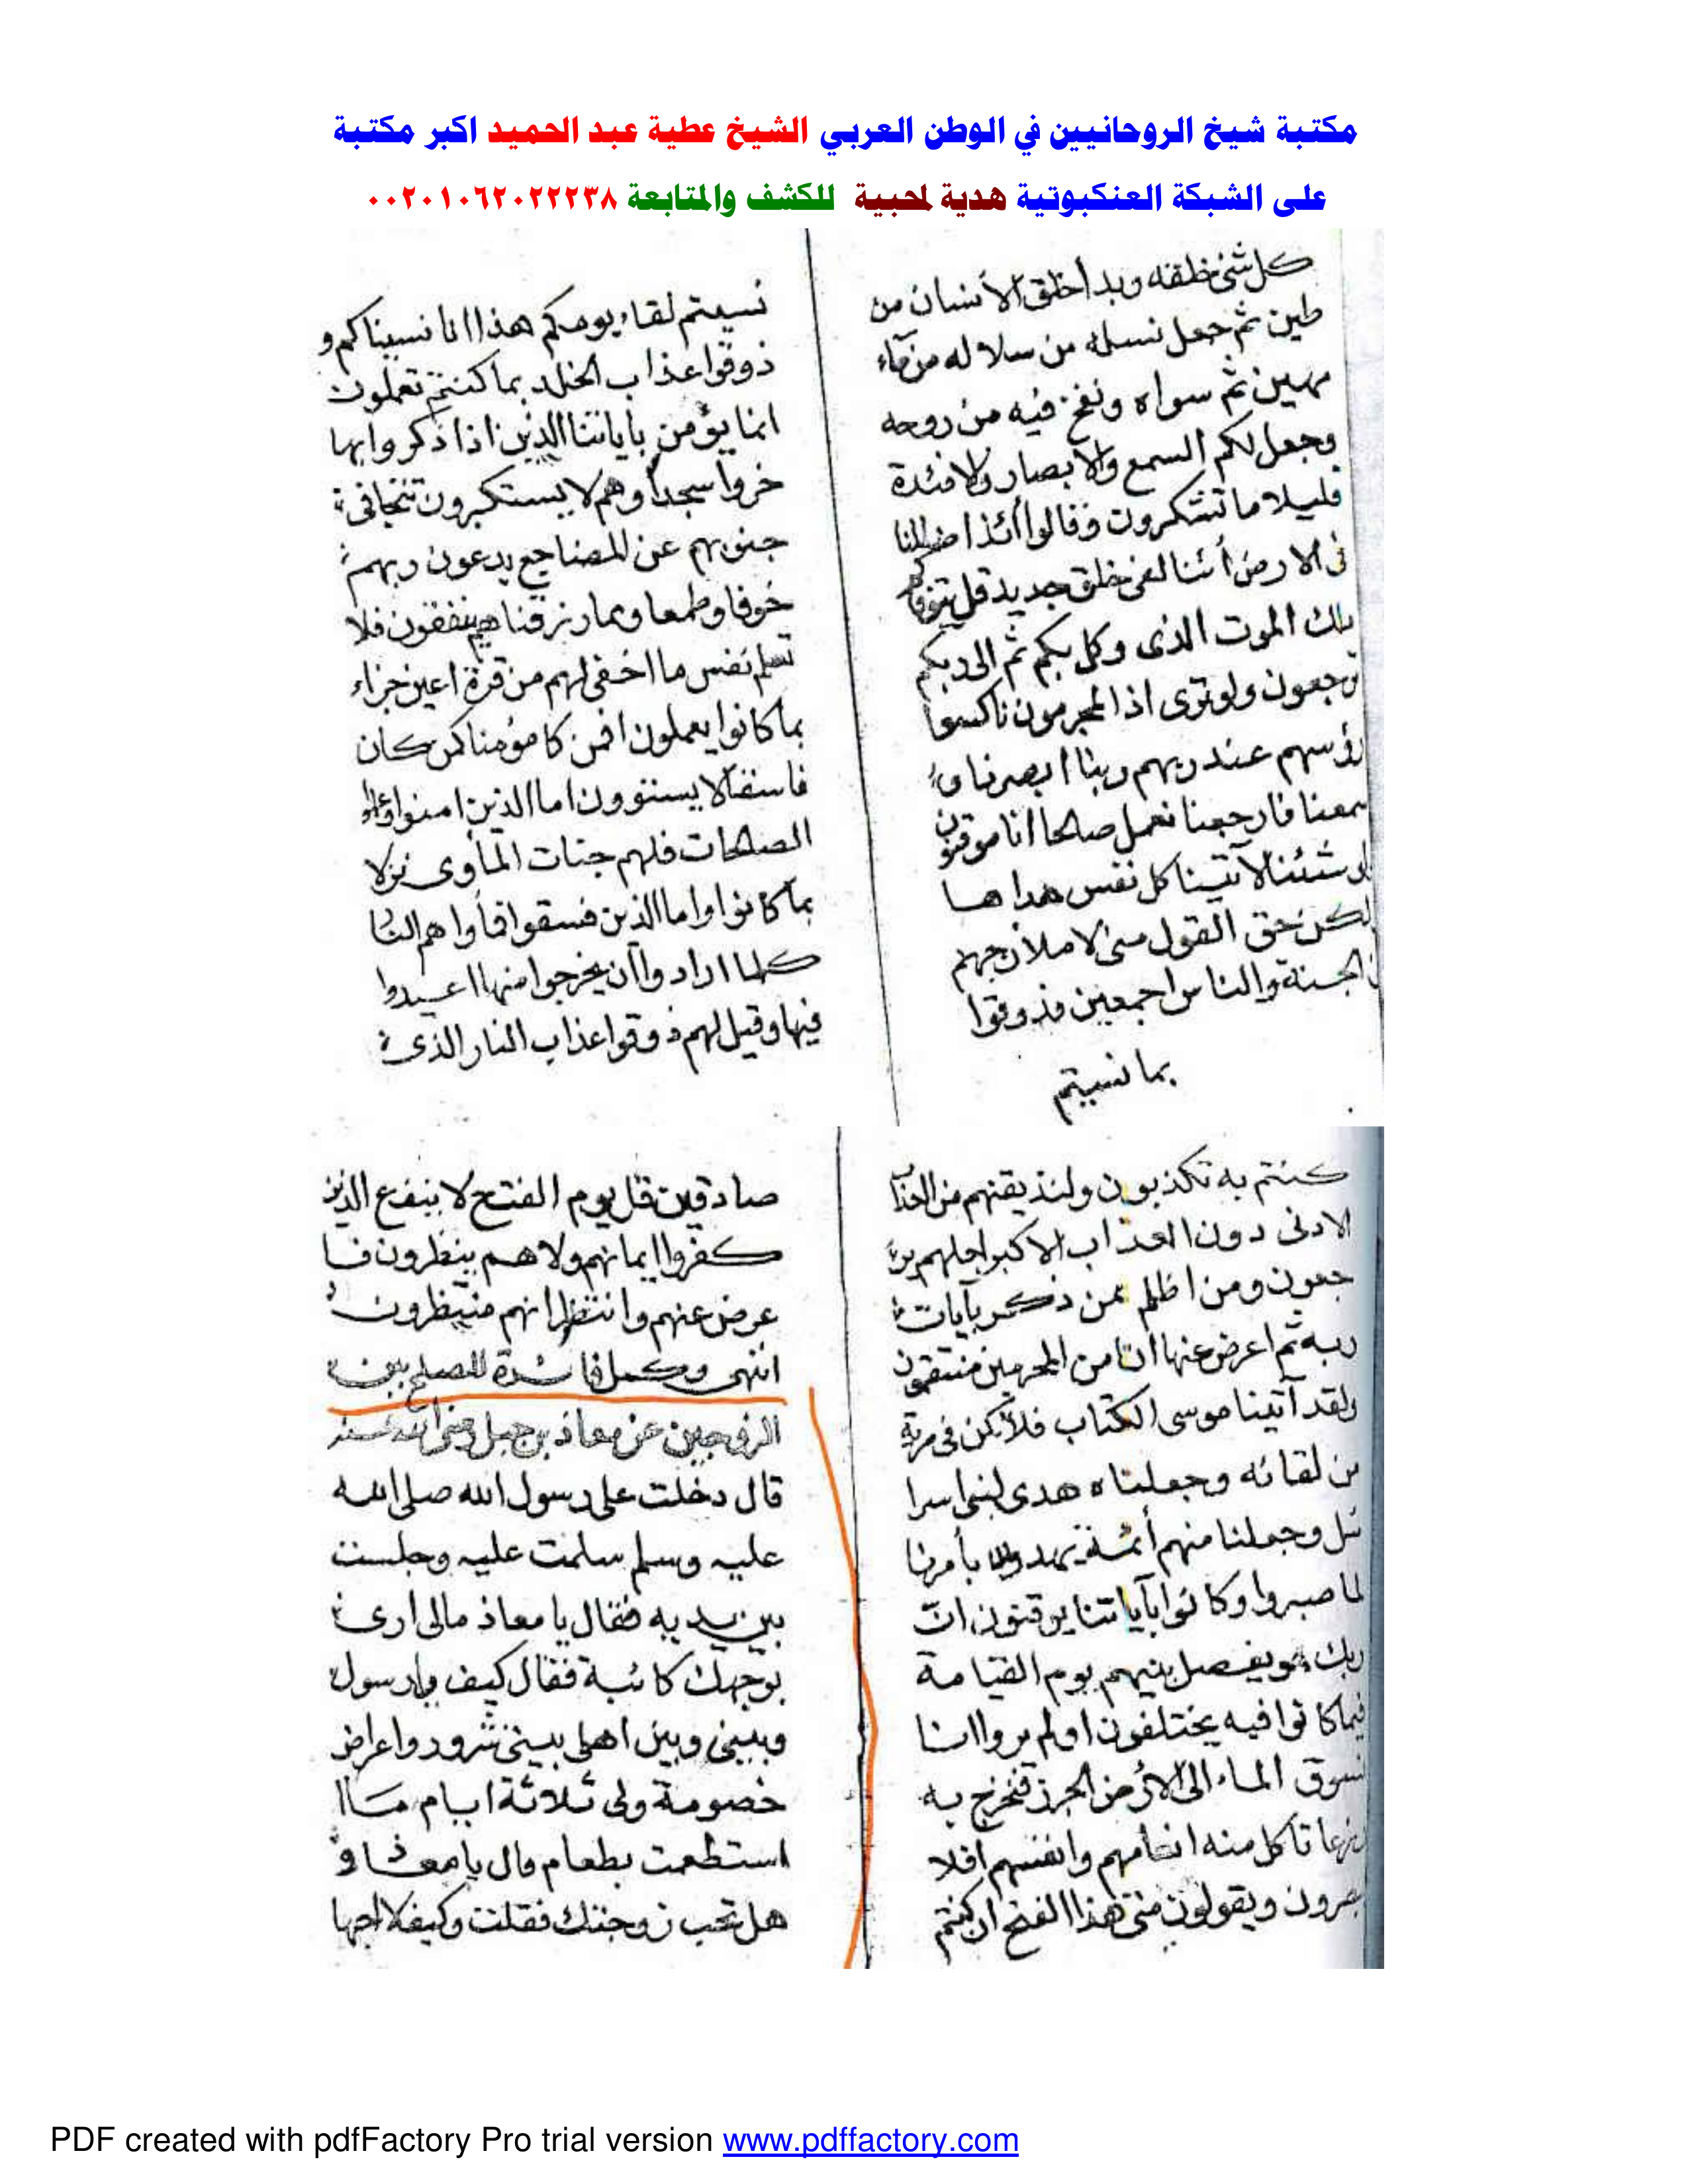 مكتبة شيخ الروحانيين في الوطن العربي الشيخ عطية عبد الحميد اكبر مكتبة
على الشبكة العنكبوتية هدية لمحبيية للكشف والمتابعة ٠٠٢٠١٠٦٢٠٢٢٢٣٨
كل شئ خلقه وبدأ خلق الأنسان من
طين ثم جعل نسله من سلاله من مآء
مهين ثم سواه ونفخ فيه من روحه
وجعل لكم السمع والأبصار والافئدة
قليلا ما تشكرون وقالوا أئذا ضللنا
فى الارض أئنا لفى خلق جديد قل يتوفاكم
ملك الموت الذى وكل بكم ثم الى ربكم
ترجعون ولوترى اذ المجرمون ناكسوا
رؤسهم عند ربهم ربنا ابصرنا و
سمعنا فارجعنا نعمل صالحا انا موقنون
ولو شئنا لآتينا كل نفس هداها
ولكن حق القول منى لاملأن جهنم
من الجنة والناس اجمعين فذوقوا
بما نسيتم
نسيتم لقاء يومكم هذا انا نسيناكم و
ذوقوا عذاب الخلد بما كنتم تعملون
انما يؤمن باياتنا الذين اذا ذكروا بها
خروا سجدا وهم لا يستكبرون تتجافى
جنوبهم عن المضاجع يدعون ربهم
خوفا وطمعا ومما رزقناهم ينفقون فلا
تعلم نفس ما اخفى لهم من قرة اعين جزاء
بما كانوا يعملون افمن كا مؤمنا كمن كان
فاسقا لا يستوون اما الذين امنوا وعملوا
الصالحات فلهم جنات المأوى نزلا
بما كانوا واما الذين فسقوا فمأواهم النا
كلما ارادوا أن يخرجوا منها اعيدوا
فيها وقيل لهم ذوقوا عذاب النار الذى
كنتم به تكذبون ولنذيقنهم من العذاب
الادنى دون العذاب الاكبر لعلهم ير
جعون ومن اظلم ممن ذكر بآيات
ربه ثم اعرض عنها انا من المجرمين منتقمون
ولقد آتينا موسى الكتاب فلا تكن فى مرية
من لقائه وجعلناه هدى لبنى اسرا
ئيل وجعلنا منهم أئمة يهدون بأمرنا
لما صبروا وكانوا بآياتنا يوقنون ان
ربك هو يفصل بينهم يوم القيامة
فيما كانوا فيه يختلفون اولم يروا انا
نسوق الماء الى الأرض الجرز فنخرج به
زرعا تاكل منه انعامهم وانفسهم افلا
يبصرون ويقولون متى هذا الفتح ان كنتم
صادقين قل يوم الفتح لا ينفع الذين
كفروا ايمانهم ولاهم ينظرون فا
عرض عنهم وانتظر انهم منتظرون
انتهى وكمل فائدة للصلح بين
الزوجين عن معاذ بن جبل رضى الله عنه
قال دخلت على رسول الله صلى الله
عليه وسلم سلمت عليه وجلست
بين يديه فقال يا معاذ مالى ارى
بوجهك كائبة فقال كيف يارسول
وبينى وبين اهلى بيتى شرور واعراض
خصومة ولى ثلاثة ايام ما
استطعمت بطعام قال يا معاذ و
هل تحب زوجتك فقلت وكيف لا احبها
PDF created with pdfFactory Pro trial version www.pdffactory.com